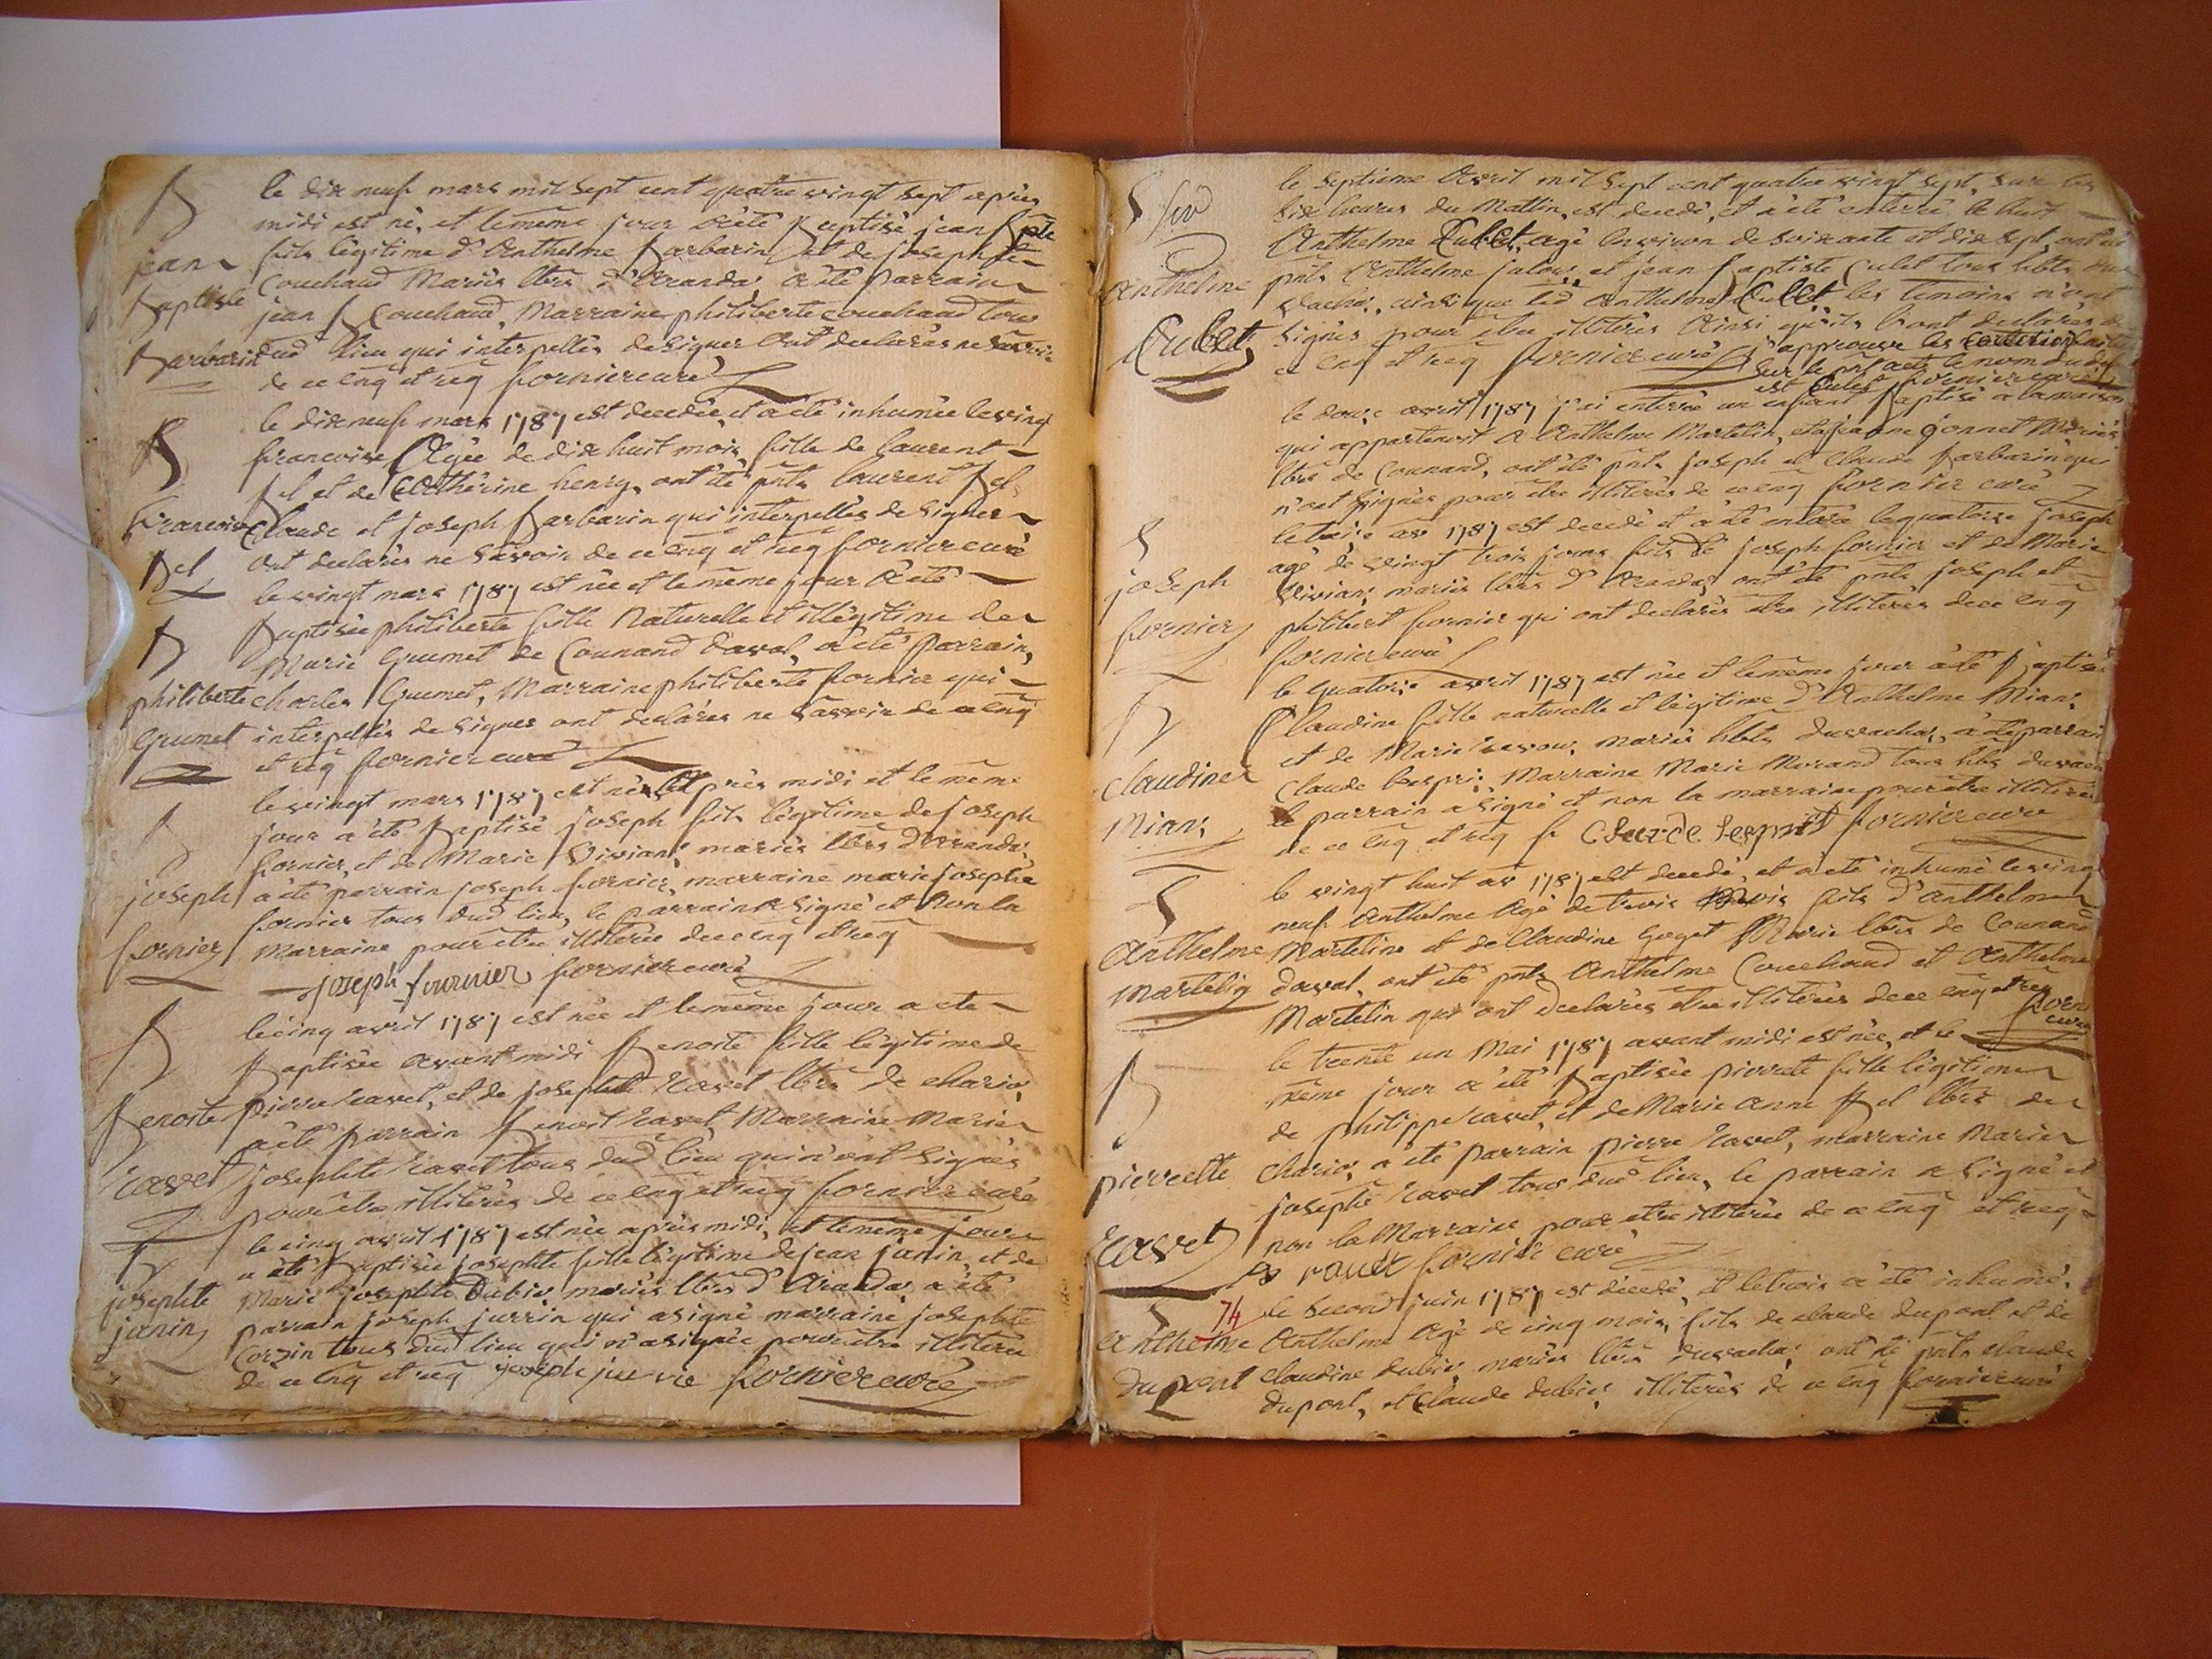 B
jean
Baptiste
Barbarin
le dix neuf mars mil sept cent quatre vingt sept après
midi est né, et le même jour a été Baptisé jean Bpte
fils légitime d'Anthelme Barbarin et de josephte
Couchaud Mariés lbrs d'Aranda, a été Parrain
jean B Couchaud, Marraine philiberte couchaud tous
dud lieu qui interpellés de signer ont declarés ne savoir
de ce enq et req fornier curé
S
francoise
Bel
le dix neuf mars 1787 est decedée, et a été inhumée le vingt
francoise Agée de dix huit mois, fille de laurent
Bel et de Catherine henry, ont été pnts laurent Bel
Claude et joseph Barbarin qui interpellés de signer
ont declarés ne savoir de ce enq et req fornier curé
B
philiberte
Grumet
le vingt mars 1787 est née et le même jour a été
Baptisée philiberte fille Naturelle et illégitime de
Marie Grumet de Counand d'aval, a été Parrain,
charles Grumet, Marraine philiberte fornier qui
interpellés de signer ont declarés ne savoir de ce enq
et req fornier curé
B
joseph
fornier
le vingt mars 1787 est né Après midi et le même
jour a été Baptisé joseph fils légitime de joseph
fornier, et de Marie Vivian, mariés lbrs d'Aranda,
a été parrain joseph fornier, marraine marie josephte
fornier tous dud lieu, le parrain a signé et non la
Marraine pour être illiterée de ce enq et req
joseph fournier fornier curé
B
Benoite
ravet
le cinq avril 1787 est née et le même jour a été
Baptisée avant midi Benoite fille légitime de
pierre ravet, et de josephte ravet lbrs de charió,
a été parrain Benoit ravet, Marraine Marie
josephte ravet tous dud lieu qui n'ont signés
pour être illiterés de ce enq et req fornier curé
B
josephte
janin
le cinq avril 1787 est née après midi, et le même jour
a été Baptisée josephte fille légitime de jean janin, et de
Marie josephte Dubie, mariés lbrs d'Aranda, a été
parrain joseph jurrin qui a signé marraine josephte
Corzin tous dud lieu qui n'a signée pour être illiterée
de ce enq et req joseph fornier curé
S
Anthelme
Culet
le septieme Avril mil sept cent quatre vingt sept, sur les
six heures du Mattin, est decedé, et a été enterré le huit
Anthelme Culet, agé Environ de soixante et dix sept, ont été
pnts Anthelme jalou, et jean Baptiste Culet tous hbts du
vachat, ainsi que led Anthelme Culet les temoins n'ont
signés pour être illiterés Ainsi qu'ils l'ont declarés de
ce enq et req fornier curé j'approuve les
sur le pnt acte le nom du dit
est Culet fornier curé
le douze avril 1787 j'ai enterré un enfant Baptisé a la maison
qui appartenoit a Anthelme Martelin, et a jeanne gonnet Mariés
lbrs de Counand, ont été pnts joseph et Claude Barbarin qui
n'ont signés pour être illiterés de ce enq fornier curé
S
joseph
fornier
le treize av 1787 est decedé et a été enterré le quatorze joseph
agé de vingt trois jours fils de joseph fornier et de Marie
Vivian, mariés lbrs d'Aranda, ont été pnts joseph et
philibert fornier qui ont declarés être illiterés de ce enq
fornier curé
B
Claudine
Mian
le quatorze avril 1787 est née et le même jour a été Baptisée
Claudine fille naturelle et légitime d'Anthelme Mian,
et de Marie mariés hbts du vachat, a été parrain
Claude lespri, Marraine Marie Morand tous hbs du vachat
le parrain a signé et non la marraine pour être illiterée
de ce enq et req Claude lesprit fornier curé
S
Anthelme
Martelin
le vingt huit av 1787 est decedé, et a été inhumé le vingt
neuf Anthelme Agé de trois Mois fils d'Anthelme
Marteline et de Claudine Goget Mariés lbrs de Counand
d'aval, ont été pnts Anthelme Couchaud et Anthelme
Martelin qui ont declarés être illiterés de ce enq et req
fornier
curé
B
pierrette
ravet
le trente un Mai 1787 avant midi est née, et le
même jour a été Baptisée pierrete fille légitime
de philippe ravet, et de Marie anne Bel lbrs de
charió, a été parrain pierre ravet, marraine Marie
josephte ravet tous dud lieu, le parrain a signé et
non la Marraine pour être illiterée de ce enq et req
fornier curé
S
74
Anthelme
dupont
le second juin 1787 est decedé, et le trois a été inhumé,
Anthelme Agé de cinq mois, fils de claude dupont et de
claudine dubie, mariés lbrs du vachat, ont été pnts claude
dupont, et Claude dubie, illiterés de ce enq fornier curé